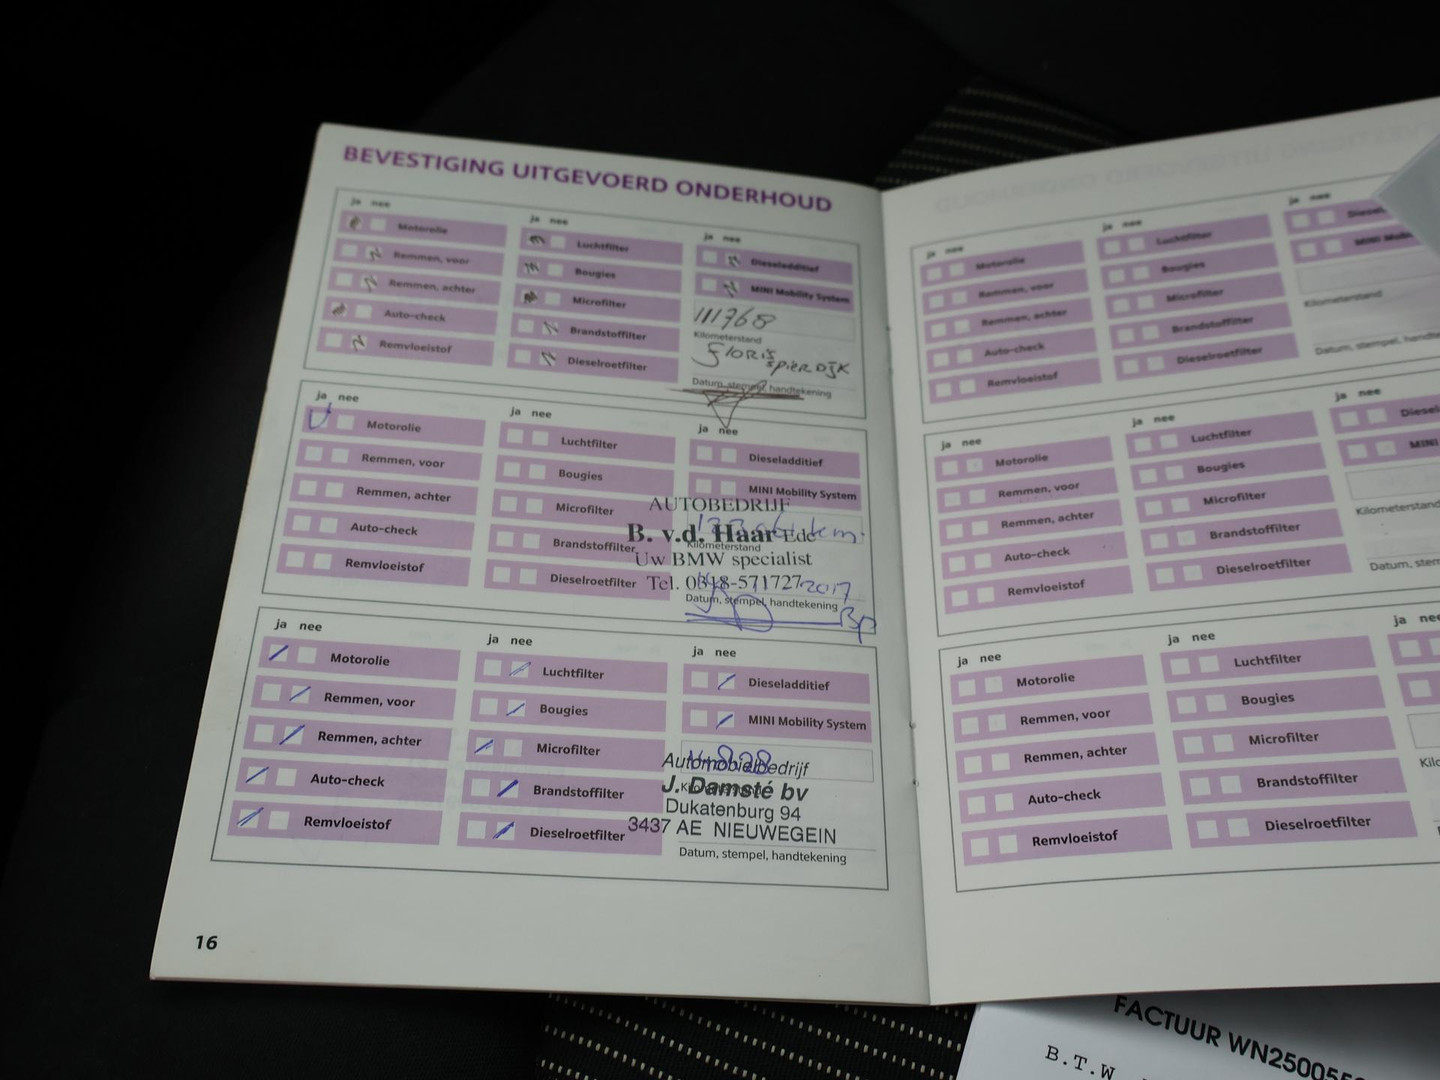 BEVESTIGING UITGEVOERD ONDERHOUD
ja nee
Motorolie
Remmen, voor
Remmen, achter
Auto-check
Remvloeistof
ja nee
Luchtfilter
Bougies
Microfilter
Brandstoffilter
Dieselroetfilter
ja nee
Dieseladditief
MINI Mobility System
111768
Kilometerstand
Floris
Spierdijk
Datum, stempel, handtekening
ja nee
Motorolie
Remmen, voor
Remmen, achter
Auto-check
Remvloeistof
ja nee
Luchtfilter
Bougies
Microfilter
Brandstoffilter
Dieselroetfilter
ja nee
Dieseladditief
MINI Mobility System
AUTOBEDRIJF
B. v.d. Haar Ede
Kilometerstand
Uw BMW specialist
Tel. 0318-571727
2017
Datum, stempel, handtekening
ja nee
Motorolie
Remmen, voor
Remmen, achter
Auto-check
Remvloeistof
ja nee
Luchtfilter
Bougies
Microfilter
Brandstoffilter
Dieselroetfilter
ja nee
Dieseladditief
MINI Mobility System
Automobielbedrijf
J. Damsté bv
Dukatenburg 94
3437 AE NIEUWEGEIN
Datum, stempel, handtekening
16
ja nee
Motorolie
Remmen, voor
Remmen, achter
Auto-check
Remvloeistof
ja nee
Luchtfilter
Bougies
Microfilter
Brandstoffilter
Dieselroetfilter
ja nee
MINI
Kilometerstand
ja nee
Motorolie
Remmen, voor
Remmen, achter
Auto-check
Remvloeistof
ja nee
Luchtfilter
Bougies
Microfilter
Brandstoffilter
Dieselroetfilter
ja nee
MINI
Kilometerstand
ja nee
Motorolie
Remmen, voor
Remmen, achter
Auto-check
Remvloeistof
ja nee
Luchtfilter
Bougies
Microfilter
Brandstoffilter
Dieselroetfilter
ja nee
FACTUUR
B.T.W